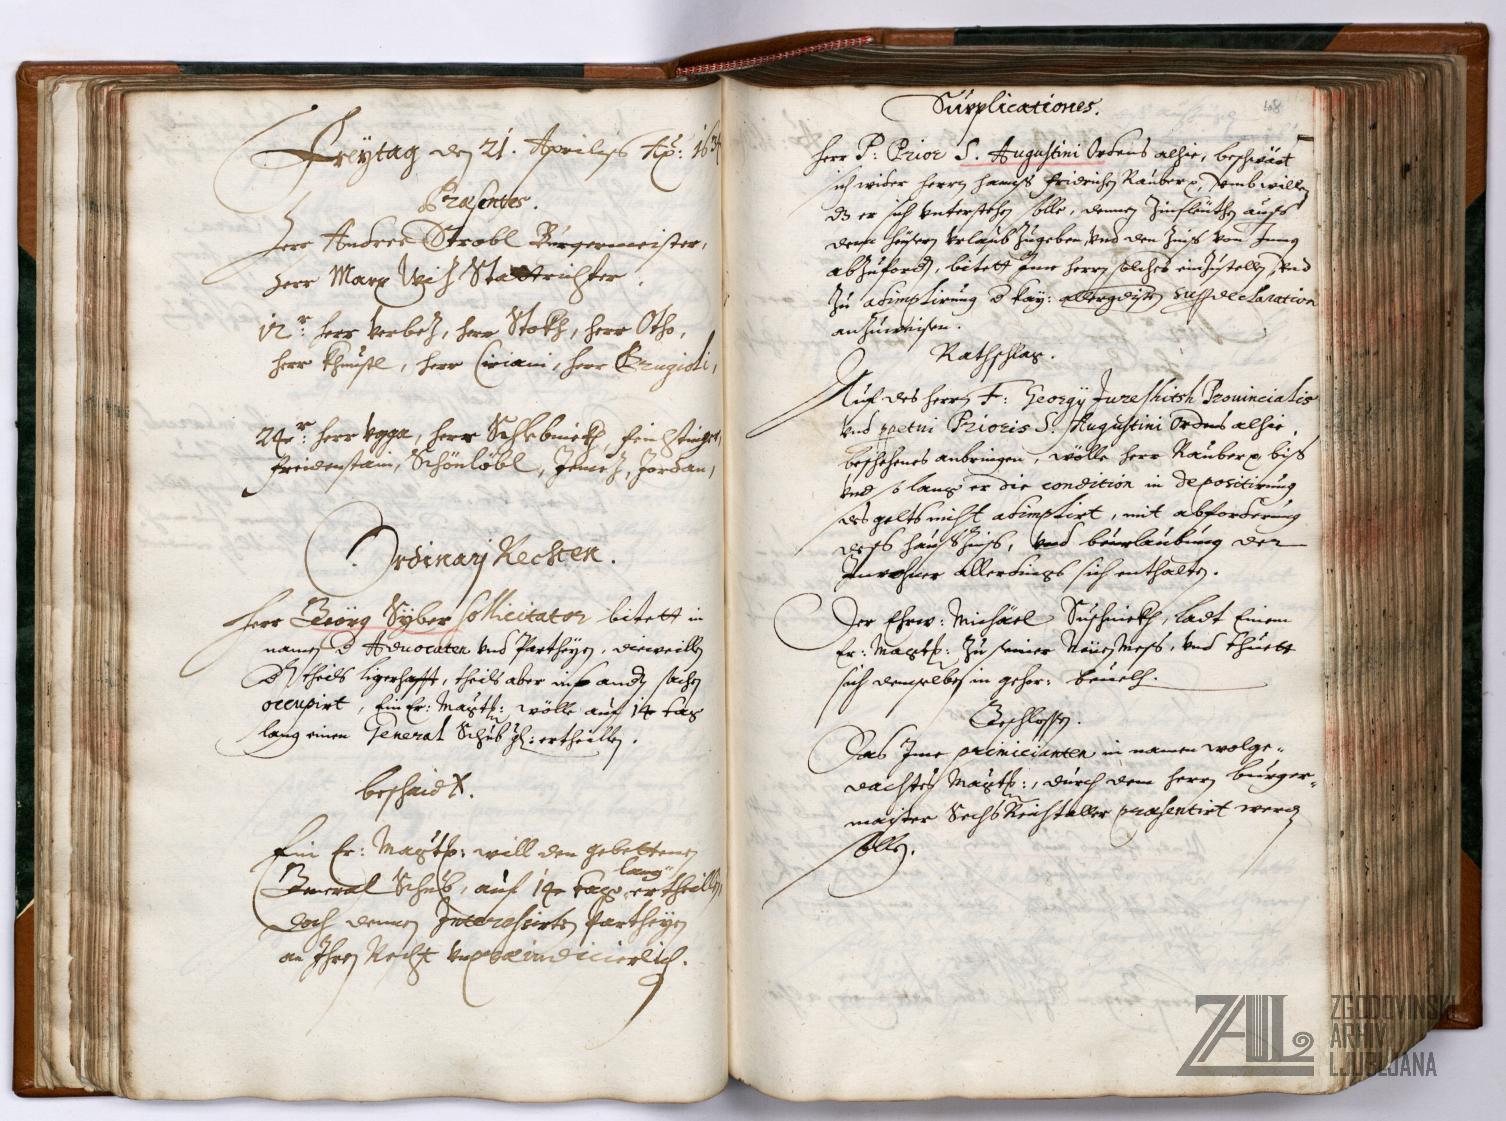 Freÿtag den 21. Aprilis Ao: 163
Præsentes.
Herr Andree Strobl Burgermeister,
Herr Marx Stattrichter.
12r: herr Verbez, herr Stokh, herr Otho,
herr Khunstl, herr Ciriani, herr
24r: herr Ugga, herr
freidenstain, Schönlöbl, Jemez, Jordan,
Ordinarj Rechten.
Herr Geörg Sÿber sollicitator bitett in
namen d Aduocaten vnd Partheÿen, dieweillen
theils ligerhafft, theils aber in andern sachen
occupirt, Ein Er: Magtt: wölle auf 14 tag
lang einen General Schub gl: ertheillen.
beschaidt.
Ein Er: Magtt: will den gebettenen
lang
General Schub, auf 14 tag ertheillen,
doch denen Interessirten Partheÿen
an Ihren Recht vnpræiudicierlich.
Supplicationes.
48
Herr P: Prior S. Augustini Ordens alhie, beschwärt
sich wider herrn Hannß Fridrichen Rauber p, vmb willen
dz er sich vnterstehen solle, denen Zinßleuthen auß
den heusern vrlaub zugeben, vnd den Zinß von Inen
abzufordern, bitett Ime herrn solches einzustellen, vnd
zu adimplirung d kaÿ: declaration
anzuweisen.
Rathschlag.
Auf des herrn F: Georgÿ Jureshitsh Prouincialis
vnd ppetui Prioris S. Augustini Ordens alhie,
beschehenes anbringen, wölle herr Rauber p, biß
vnd so lang er die condition in depositirung
des gelts nicht adimplirt, mit abforderung
deß hauß Zinß, vnd beurlaubung der
Inwohner allerdings sich enthalten.
Der Ehrw: Michäel Sushnikh, ladt Einen
Er: Magtt: zu seiner Neüen Mess, vnd thuett
sich demselben in gehor: beuelh.
Beschlossen.
Das Ime primicianten in namen wolge-
dachtes Magtt:, durch den herrn burger-
maister Sechs Reichstaller præsentirt werden
sollen.
ZAL
ZGODOVINSKI
ARHIV
LJUBLJANA